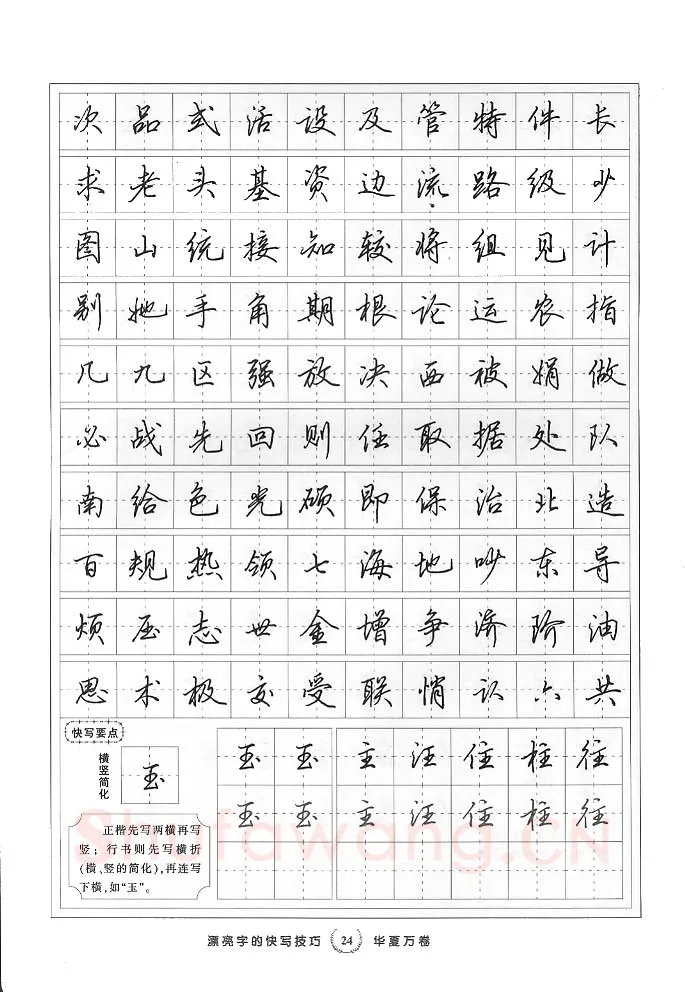 次品或活设及管特件长
求老头基资边流路级少
图山统接知较将组见计
别她手角期根论运农指
几九区强放决西被娟做
必战先回则任取据处队
南给色光硕即保治北造
百规热领七海地吵东导
烦压志世金增争济阶油
思术极交受联悄认六共
快写要点
横竖简化
玉
玉玉主汪住柱往
玉玉主汪住柱往
正楷先写两横再写
竖；行书则先写横折
(横、竖的简化),再连写
下横,如“玉”。
Shufawang.CN
漂亮字的快写技巧 24 华夏万卷